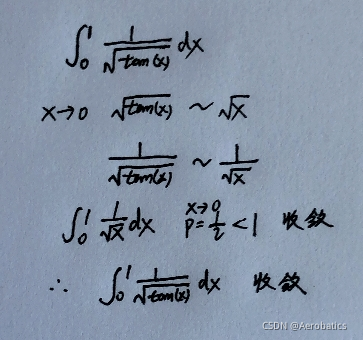 ∫₀¹ 1/√tan(x) dx
x→0 √tan(x) ~ √x
1/√tan(x) ~ 1/√x
∫₀¹ 1/√x dx x→0 p=1/2<1 收敛
∴ ∫₀¹ 1/√tan(x) dx 收敛
CSDN @Aerobatics